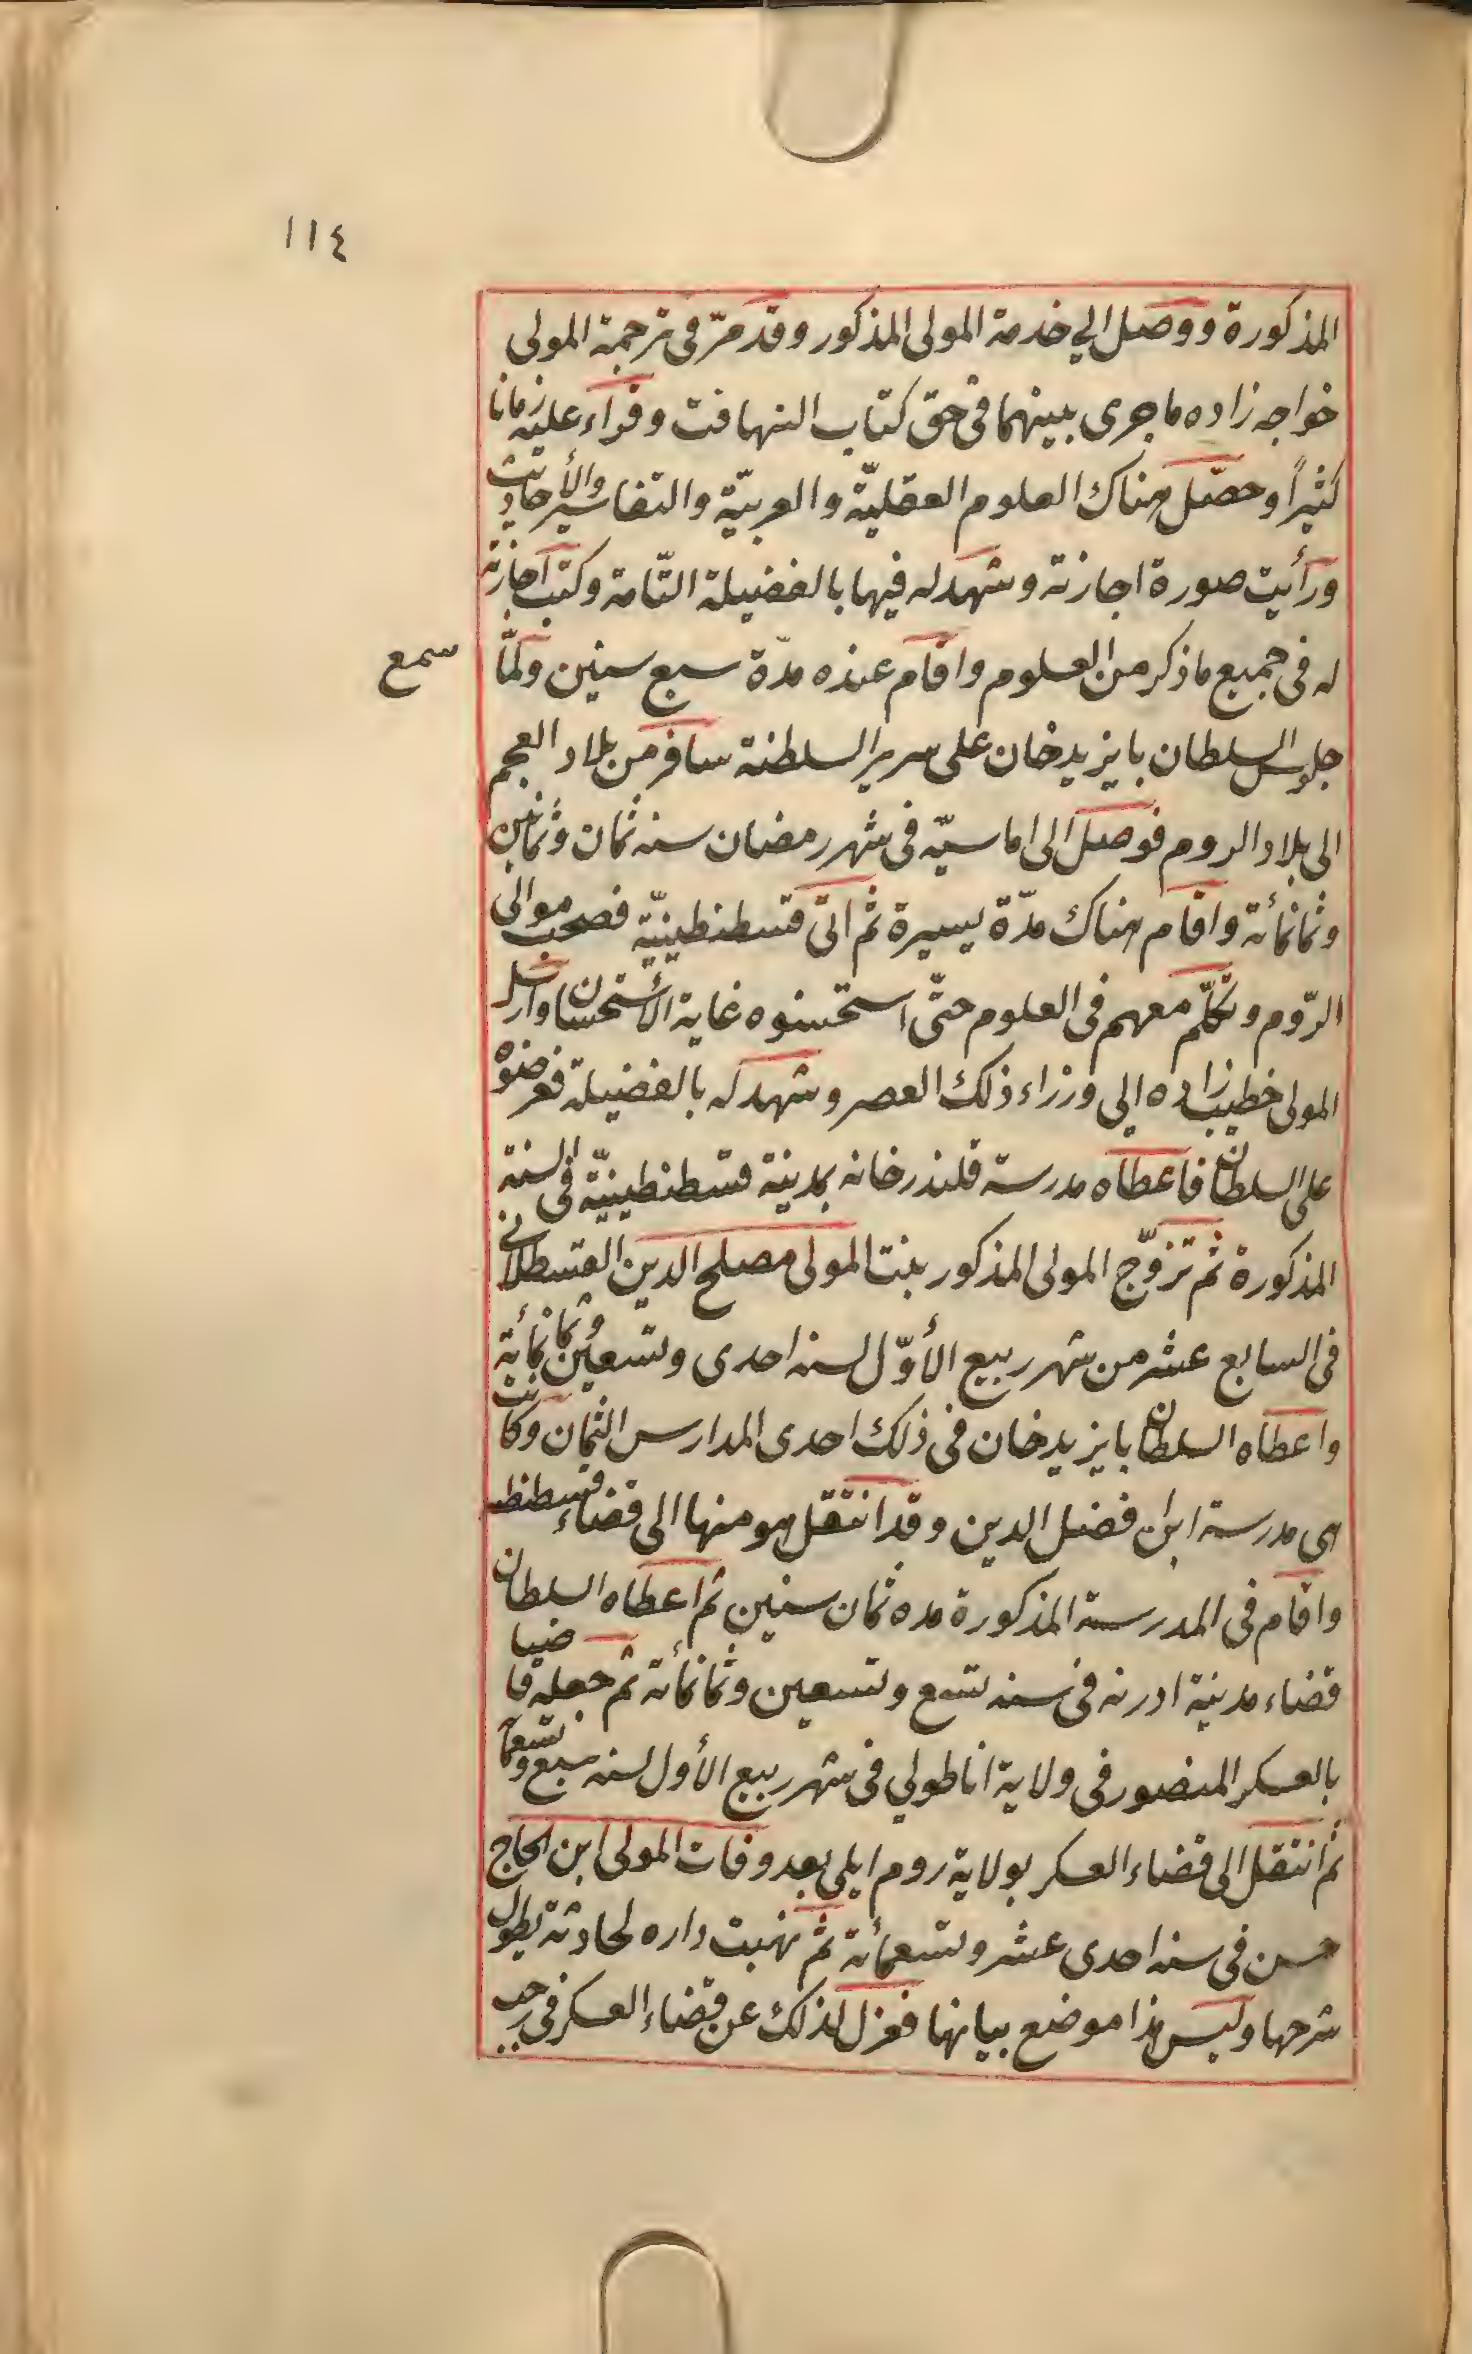 ١١٤
المذكورة ووصل الى خدمة المولى المذكور وقد مرّ فى ترجمة المولى
خواجه زاده ماجرى بينهما فى حق كتاب التهافت وقراء عليه زمانا
كثيراً وحصّل هناك العلوم العقليّة والعربيّة والتفاسير والأحاديث
ورأيت صورة اجازته وشهد له فيها بالفضيلة التّامة وكتب اجازته
له فى جميع ما ذكر من العلوم واقام عنده مدّة سبع سنين ولمّا
سمع
جلوس السلطان بايزيد خان على سرير السلطنة سافر من بلاد العجم
الى بلاد الروم فوصل الى اماسيّه فى شهر رمضان سنه ثمان وثمانين
وثمانمائة واقام هناك مدّة يسيرة ثم اتى قسطنطينيّة فصحب موالى
الرّوم وتكلّم معهم فى العلوم حتّى استحسنوه غاية الأستحسان وارسل
المولى خطيب زاده الى وزراء ذلك العصر وشهد له بالفضيلة فعرضوه
على السلطان فاعطاه مدرسة قلندرخانه بمدينة قسطنطينيّة فى السنة
المذكورة ثم تزوّج المولى المذكور بنت المولى مصلح الدين القسطلانى
فى السابع عشر من شهر ربيع الأوّل لسنه احدى وتسعين وثمانمائة
واعطاه السلطان بايزيد خان فى ذلك احدى المدارس الثمان وكانت
هى مدرسة ابن افضل الدين وقد انتقل هو منها الى قضاء قسطنطـ
واقام فى المدرسة المذكورة مده ثمان سنين ثم اعطاه السلطان
قضاء مدينة ادرنه فى سنه تسع وتسعين وثمانمأئة ثم جعله قاضيا
بالعسكر المنصور فى ولاية اناطولي فى شهر ربيع الأول لسنه سبع وتسعمأ
ثم انتقل الى قضاء العسكر بولاية روم ايلى بعد وفات المولى ابن الحاج
حسن فى سنه احدى عشر وتسعمأئة ثم نهبت داره لحادثة يطول
شرحها وليس هذا موضع بيانها فعزل لذلك عن قضاء العسكر فى رجب